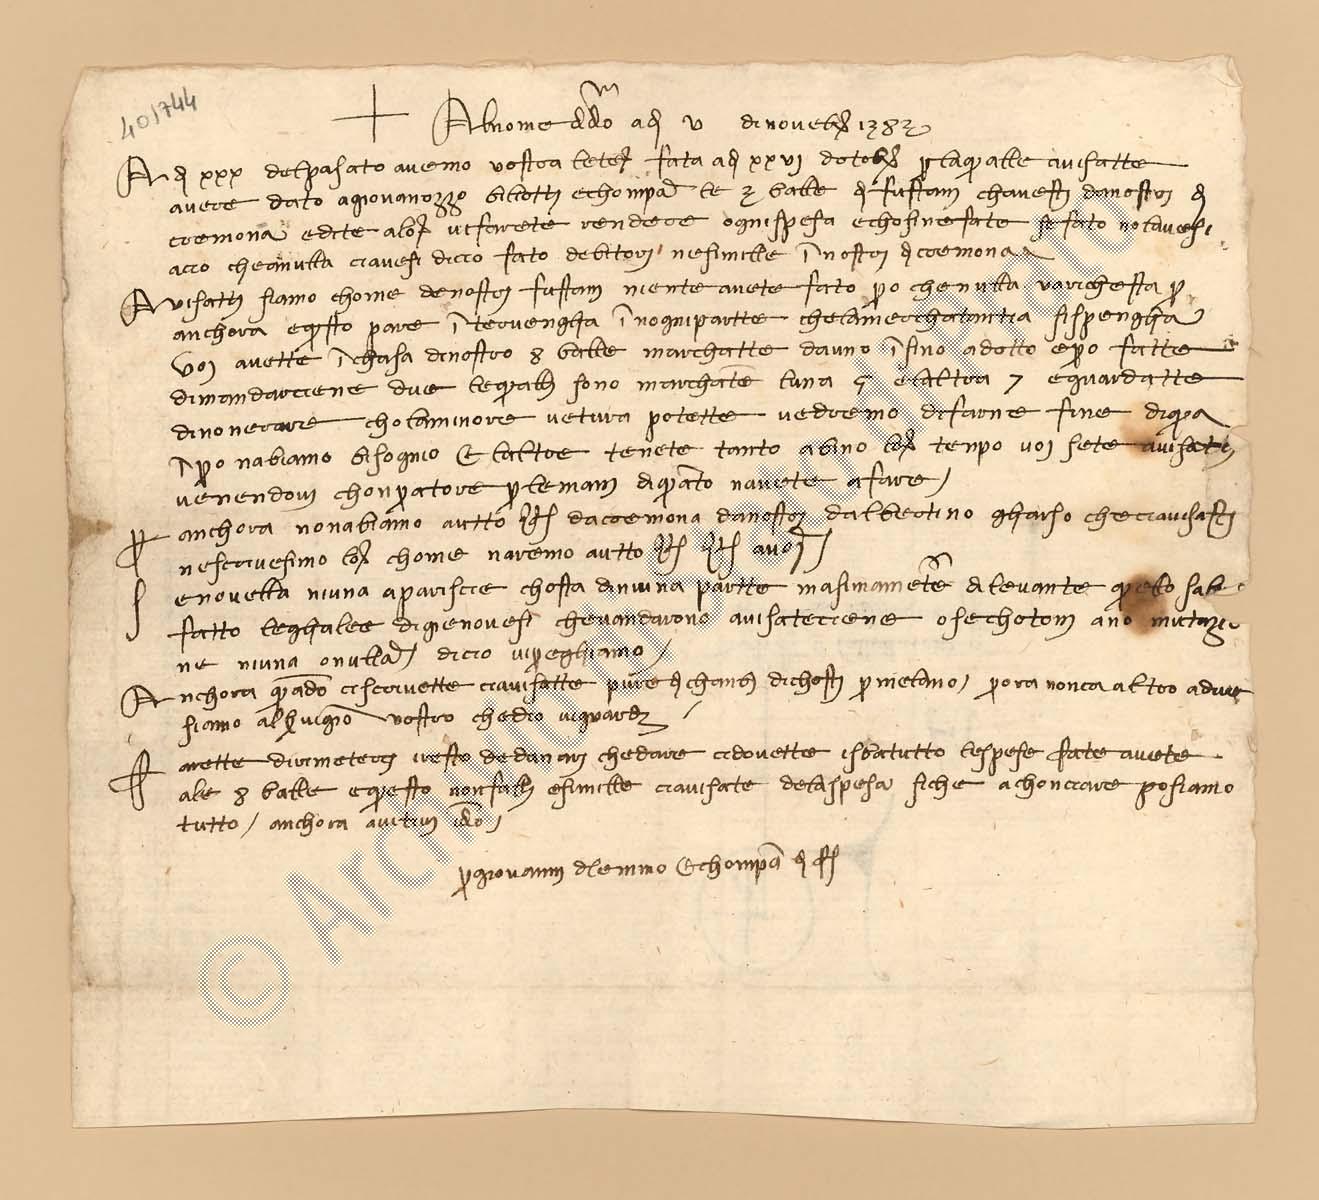 401744
Al nome di dio adi v di novenbre 1383
Adi xxx del pasato avemo vostra letera fata adi xxvi dotobre per la quale avisatte
avere dato a giovanozzo biliotti e chonpa. le 3 balle di fustani ch avesti da nostri di
cremona e dite a loro vi farete rendere ogni spesa e chosi ne fate se fato no lavesi
acio che a nulla ci avesi di cio fato debitori ne simille i nostri di cremona
Avisatti siamo chome de nostri fustani niente avete fato per o che nulla va richesta per
anchora e questo pare intervengha in ogni partte che la merchatantia si spengha
Voi avette in chasa di nostro 8 balle marchatte da uno insino a dotto e pero fatte
di mandarciene due le quali sono marchate luna 5 e laltra 7 e guardatte
di nonerare cho la minore vetura potette vedremo di farne fine di qua
in pero n abiamo bisognio e laltre tenete tanto a bino loro tenpo voi sete avisatti
venendovi chonpratore per le mani di quanto n avete a fare
anchora non abiamo autto da cremona da nostri dalbertino che ci avisasti
ne scrivesimo loro chome n aremo autto avoi
e novella niuna a pariscie chosta di niuna partte masimamente di levante quelo s abi
fatto le ghalee di gienovesi che v andarono avisateciene o se chotoni ano mutazio
ne niuna o nulla di cio vi preghiamo
Anchora quando ci scrivette ci avisatte pure di chanbi di chosti per melano per ora non ca altro a dire
siamo al servigio vostro che dio vi guardi
arette di rimeterci i resto de danari che dare ci dovette isbatutto le spese fate avete
ale 8 balle e questo non falli e simille ci avisate dela spesa siche achonciare posiamo
tutto anchora a dio
per giovanni dlemmo e chonpa. di